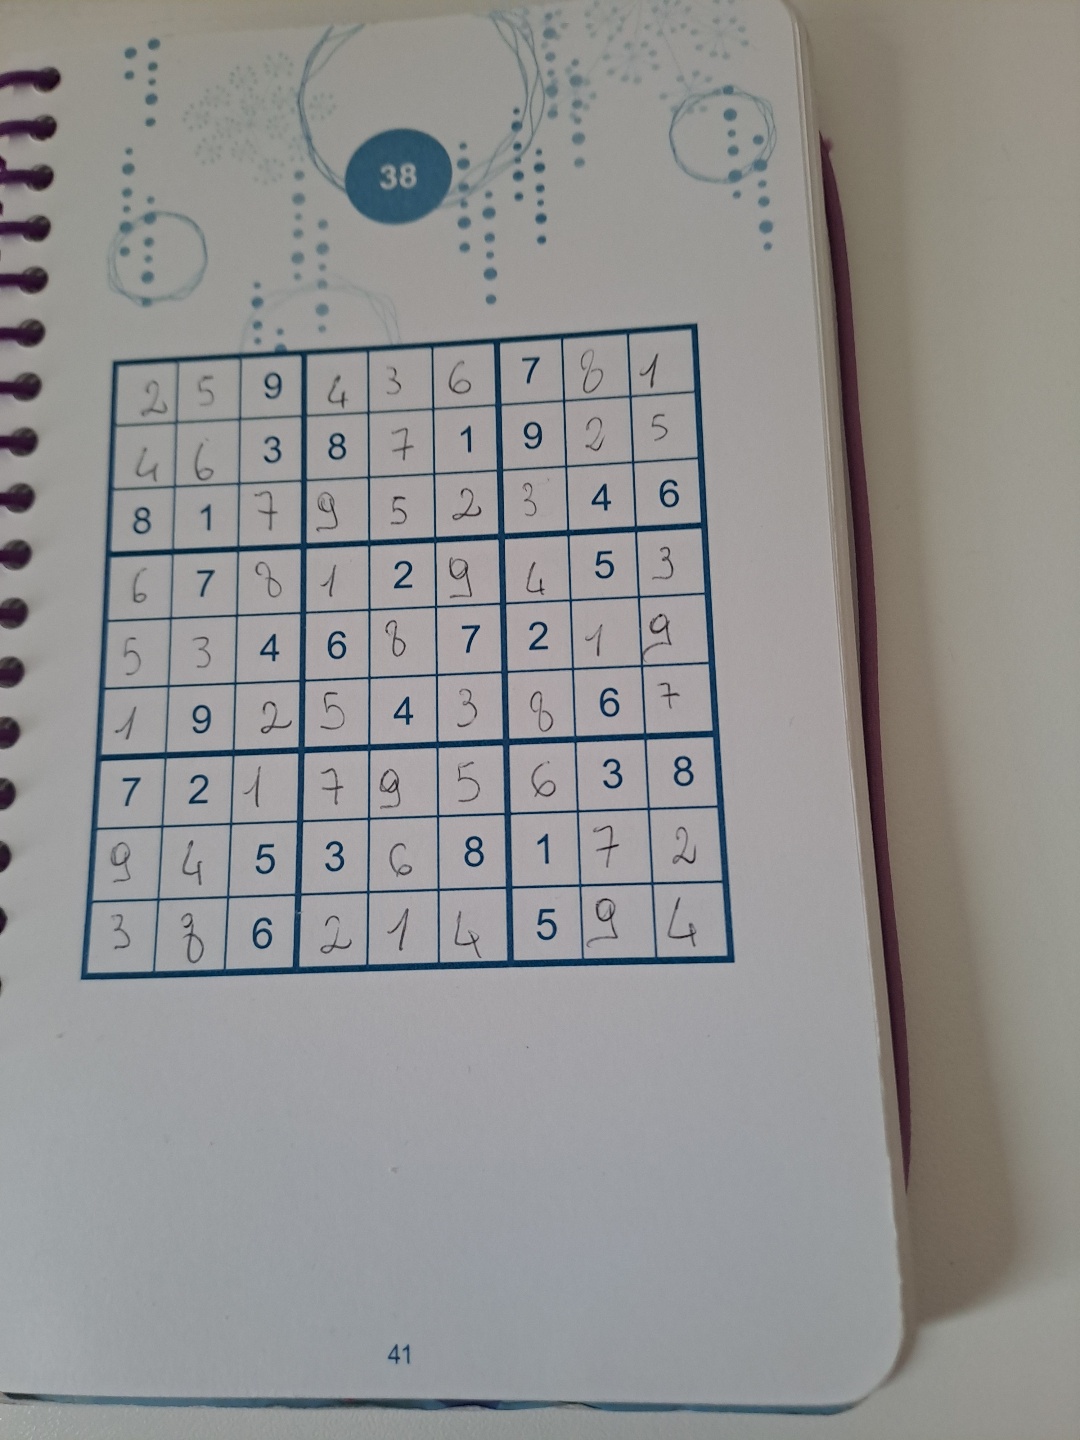 38
2 5 9 4 3 6 7 8 1
4 6 3 8 7 1 9 2 5
8 1 7 9 5 2 3 4 6
6 7 8 1 2 9 4 5 3
5 3 4 6 8 7 2 1 9
1 9 2 5 4 3 8 6 7
7 2 1 7 9 5 6 3 8
9 4 5 3 6 8 1 7 2
3 8 6 2 1 4 5 9 4
41